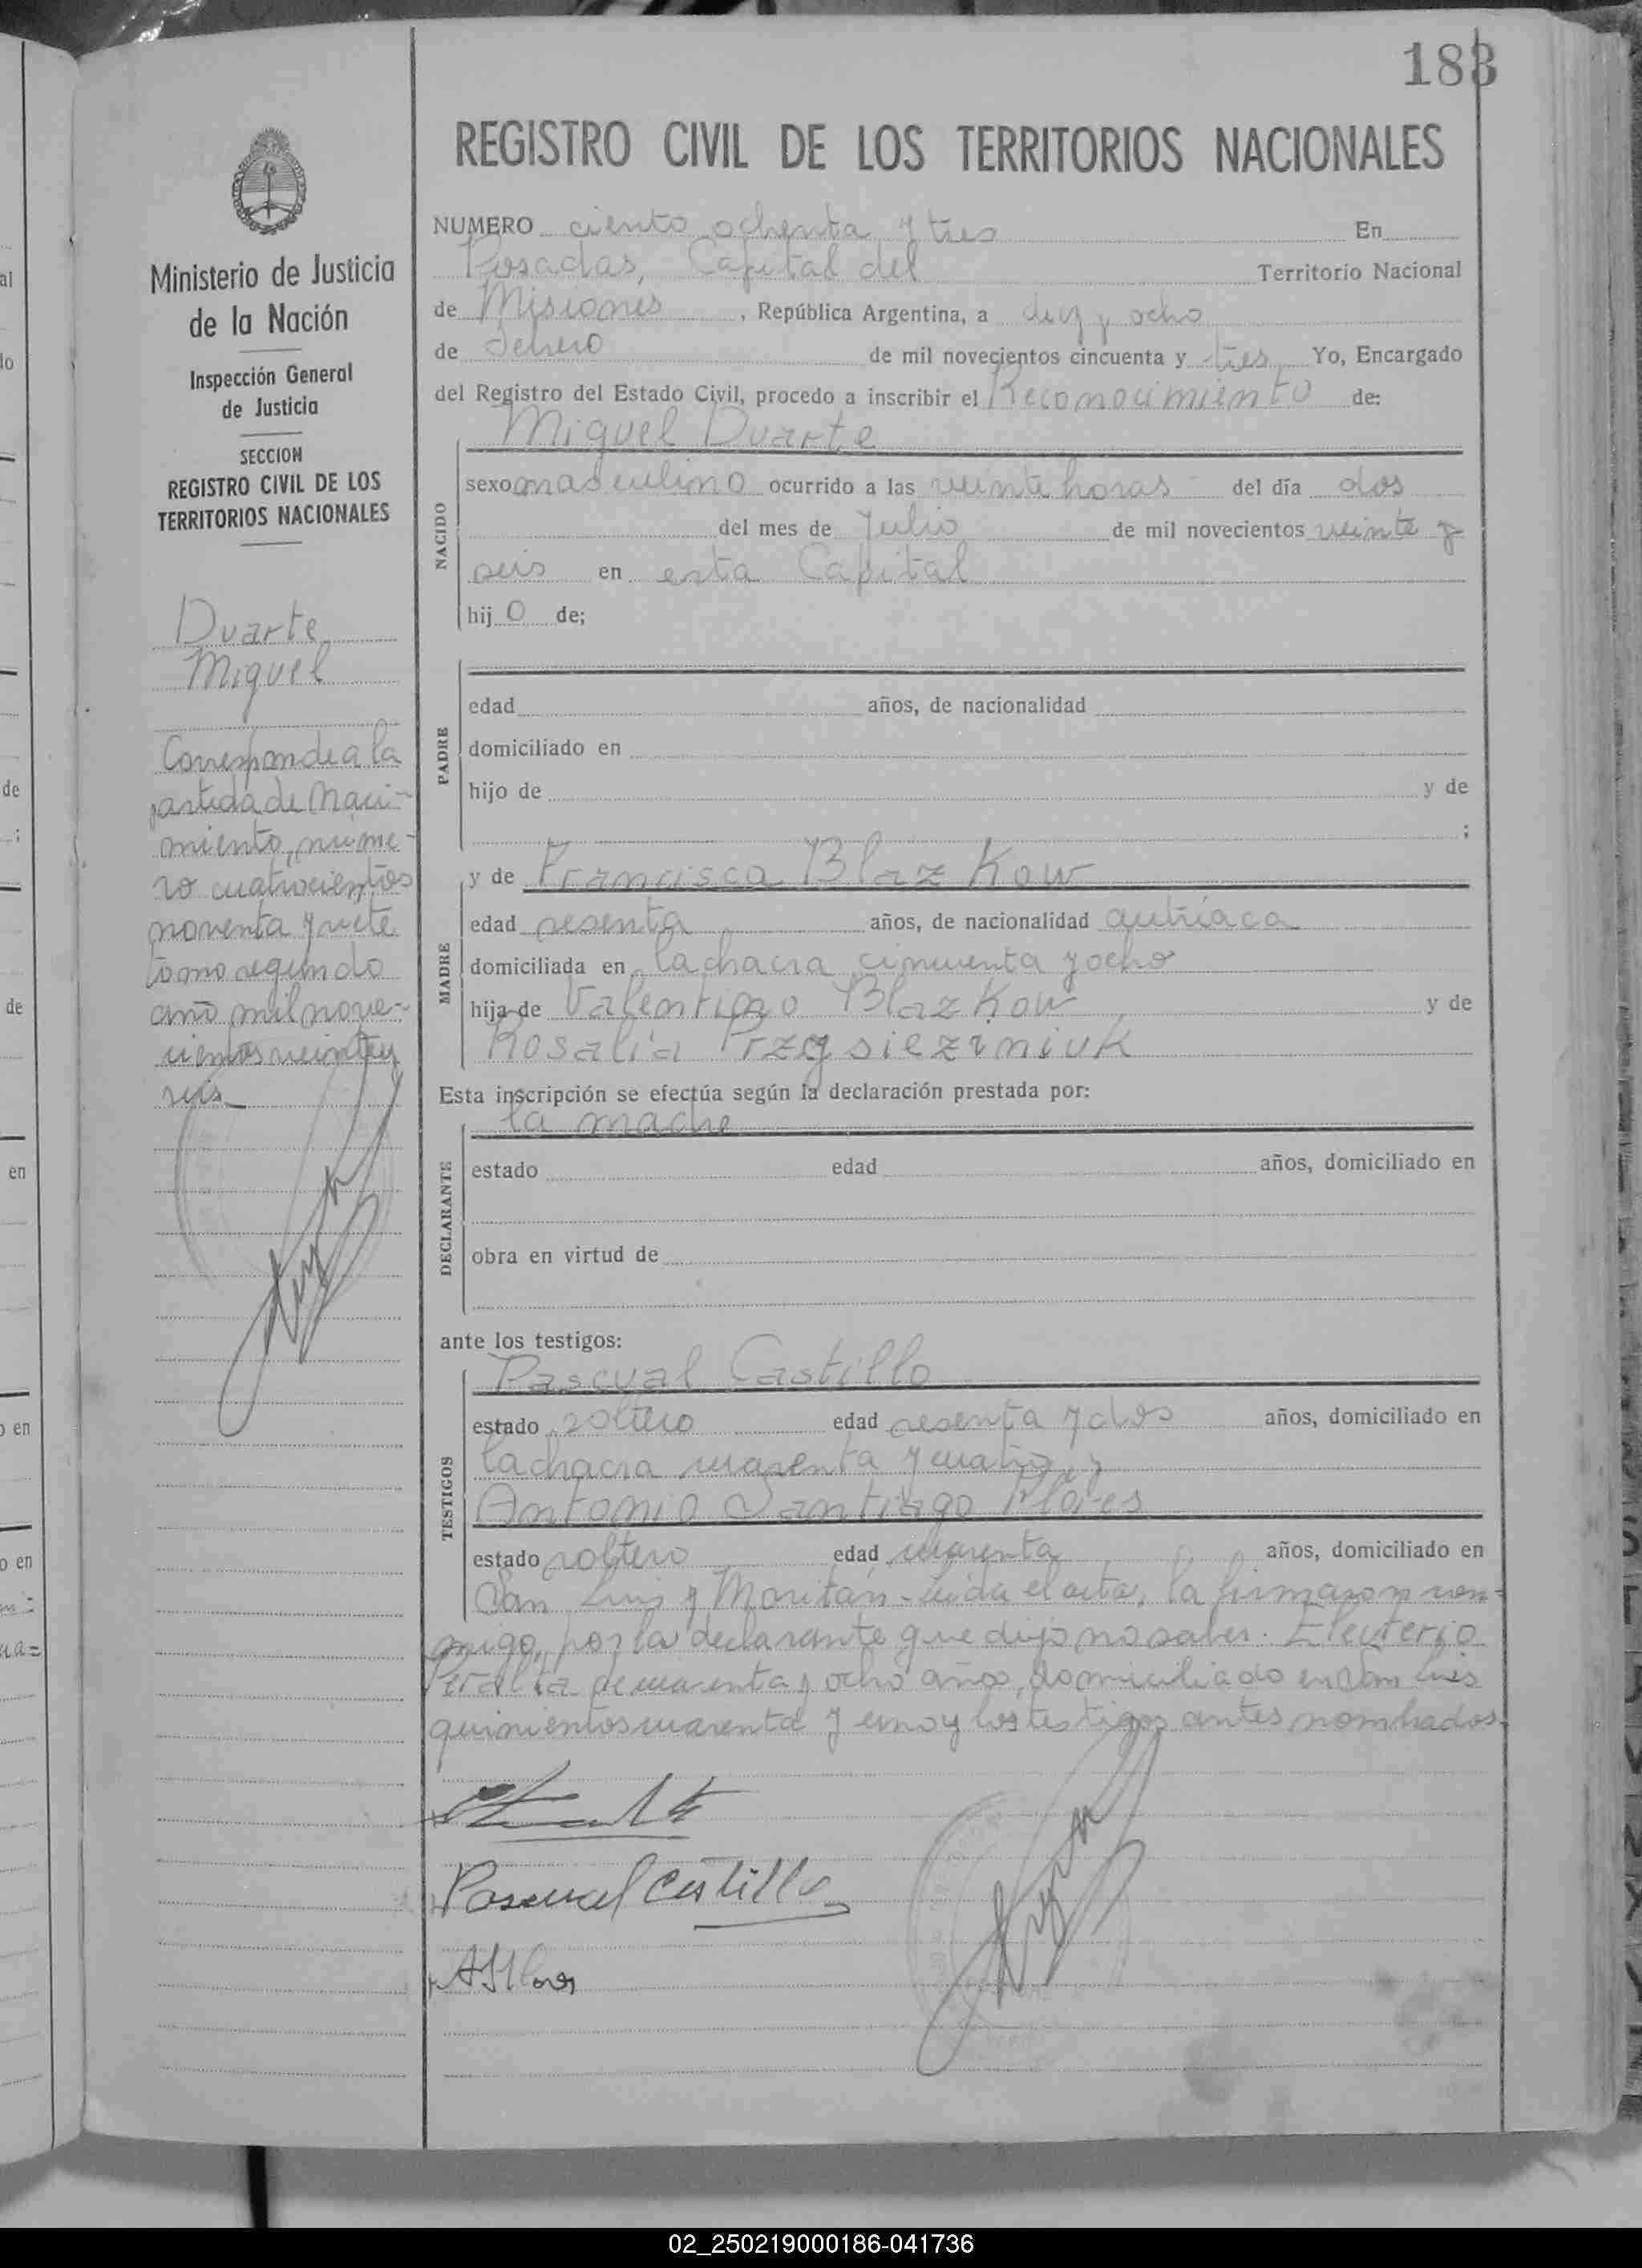 183
REGISTRO CIVIL DE LOS TERRITORIOS NACIONALES
Ministerio de Justicia
de la Nación
Inspección General
de Justicia
SECCION
REGISTRO CIVIL DE LOS
TERRITORIOS NACIONALES
Duarte
Miguel
Corresponde a la
partida de Naci-
miento, núme-
ro cuatrocientos
noventa y siete
tomo segundo
año mil nove-
cientos veinte y
seis
NUMERO ciento ochenta y tres En
Posadas, Capital del Territorio Nacional
de Misiones, República Argentina, a diez y ocho
de Febrero de mil novecientos cincuenta y tres Yo, Encargado
del Registro del Estado Civil, procedo a inscribir el Reconocimiento de:
Miguel Duarte
NACIDO
sexo masculino ocurrido a las veinte horas del día dos
del mes de Julio de mil novecientos veinte y
seis en esta Capital
hijo de;
PADRE
edad años, de nacionalidad
domiciliado en
hijo de y de
;
y de Francisca Blazkow
MADRE
edad sesenta años, de nacionalidad autríaca
domiciliada en la chacra cincuenta y ocho
hija de Valentino Blazkow y de
Rosalia Przysiezniuk
Esta inscripción se efectúa según la declaración prestada por:
la madre
DECLARANTE
estado edad años, domiciliado en
obra en virtud de
ante los testigos:
Pascual Castillo
TESTIGOS
estado soltero edad sesenta y dos años, domiciliado en
la chacra cuarenta y cuatro, y
Antonio Santiago Flores
estado soltero edad cuarenta años, domiciliado en
San Luis y Moritán - Leída el acta, la firmaron con-
migo, por la declarante que dijo no saber. Eleuterio
Peralta de cuarenta y ocho años, domiciliado en San Luis
quinientos cuarenta y uno y los testigos antes nombrados.
Pascual Castillo
ASFlores
02_250219000186-041736